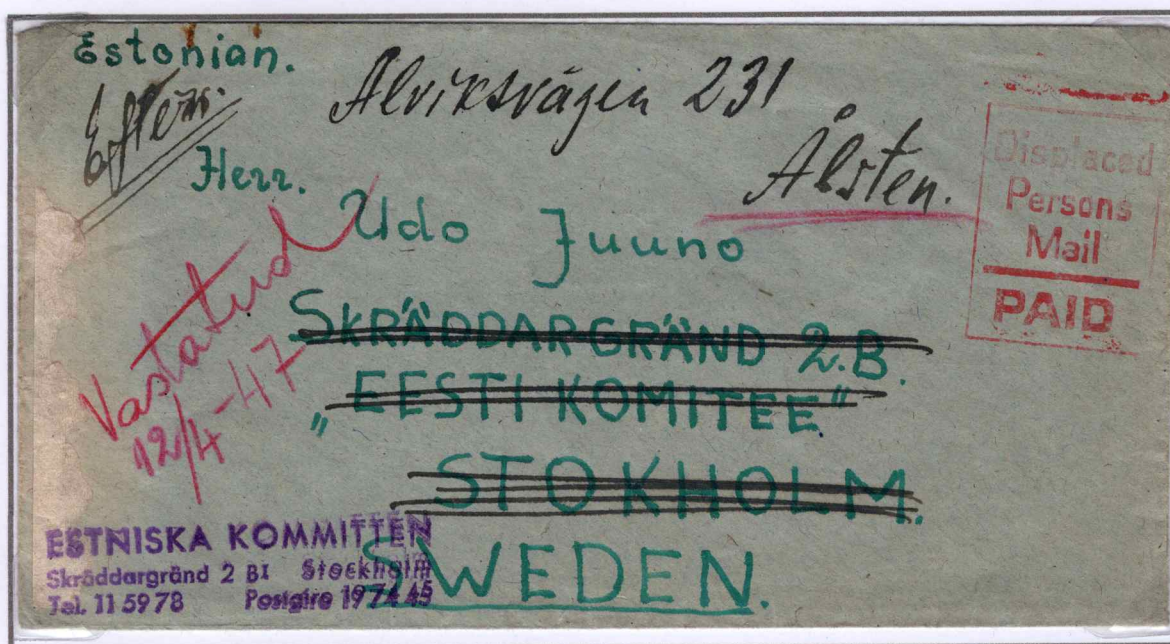 Estonian.
Efters.
Alviksvägen 231
Ålsten.
Herr.
Udo Juuno
Displaced
Persons
Mail
PAID
Vastatud
12/4-47
SKRÄDDARGRÄND 2.B.
„EESTI KOMITEE"
STOKHOLM.
SWEDEN.
ESTNISKA KOMMITTEN
Skräddargränd 2 BI Stockholm
Tel. 11 59 78 Postgiro 19 74 45